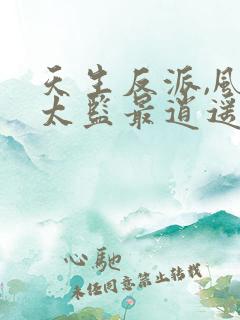 天生反派,风
太监最逍遥
心驰
未经同意禁止转载